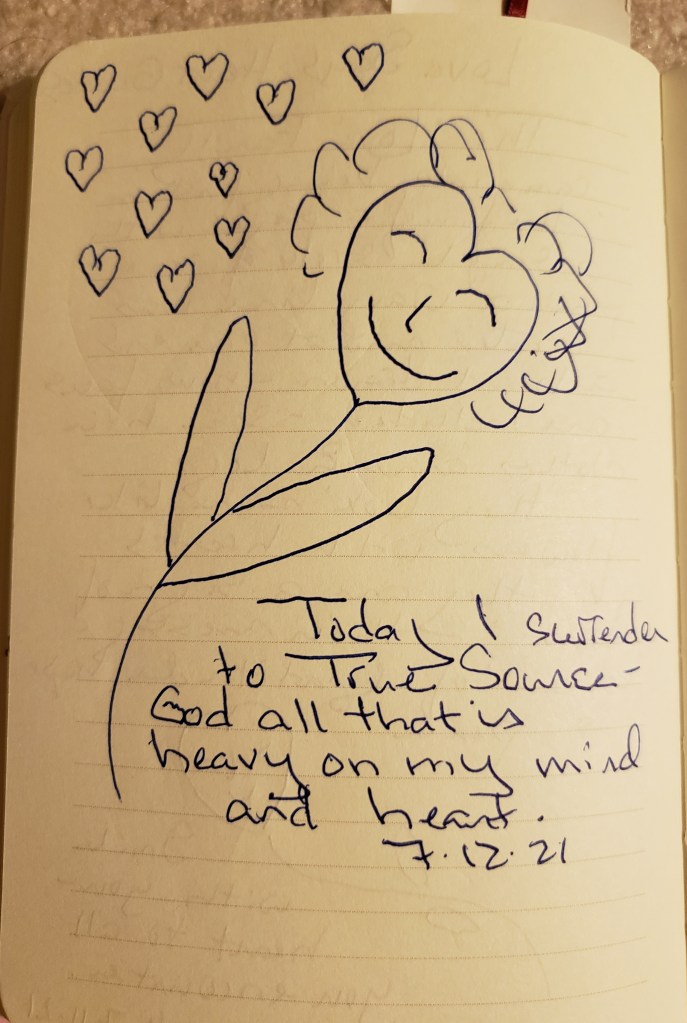 Today I surrender
to True Source-
God all that is
heavy on my mind
and heart.
7.12.21